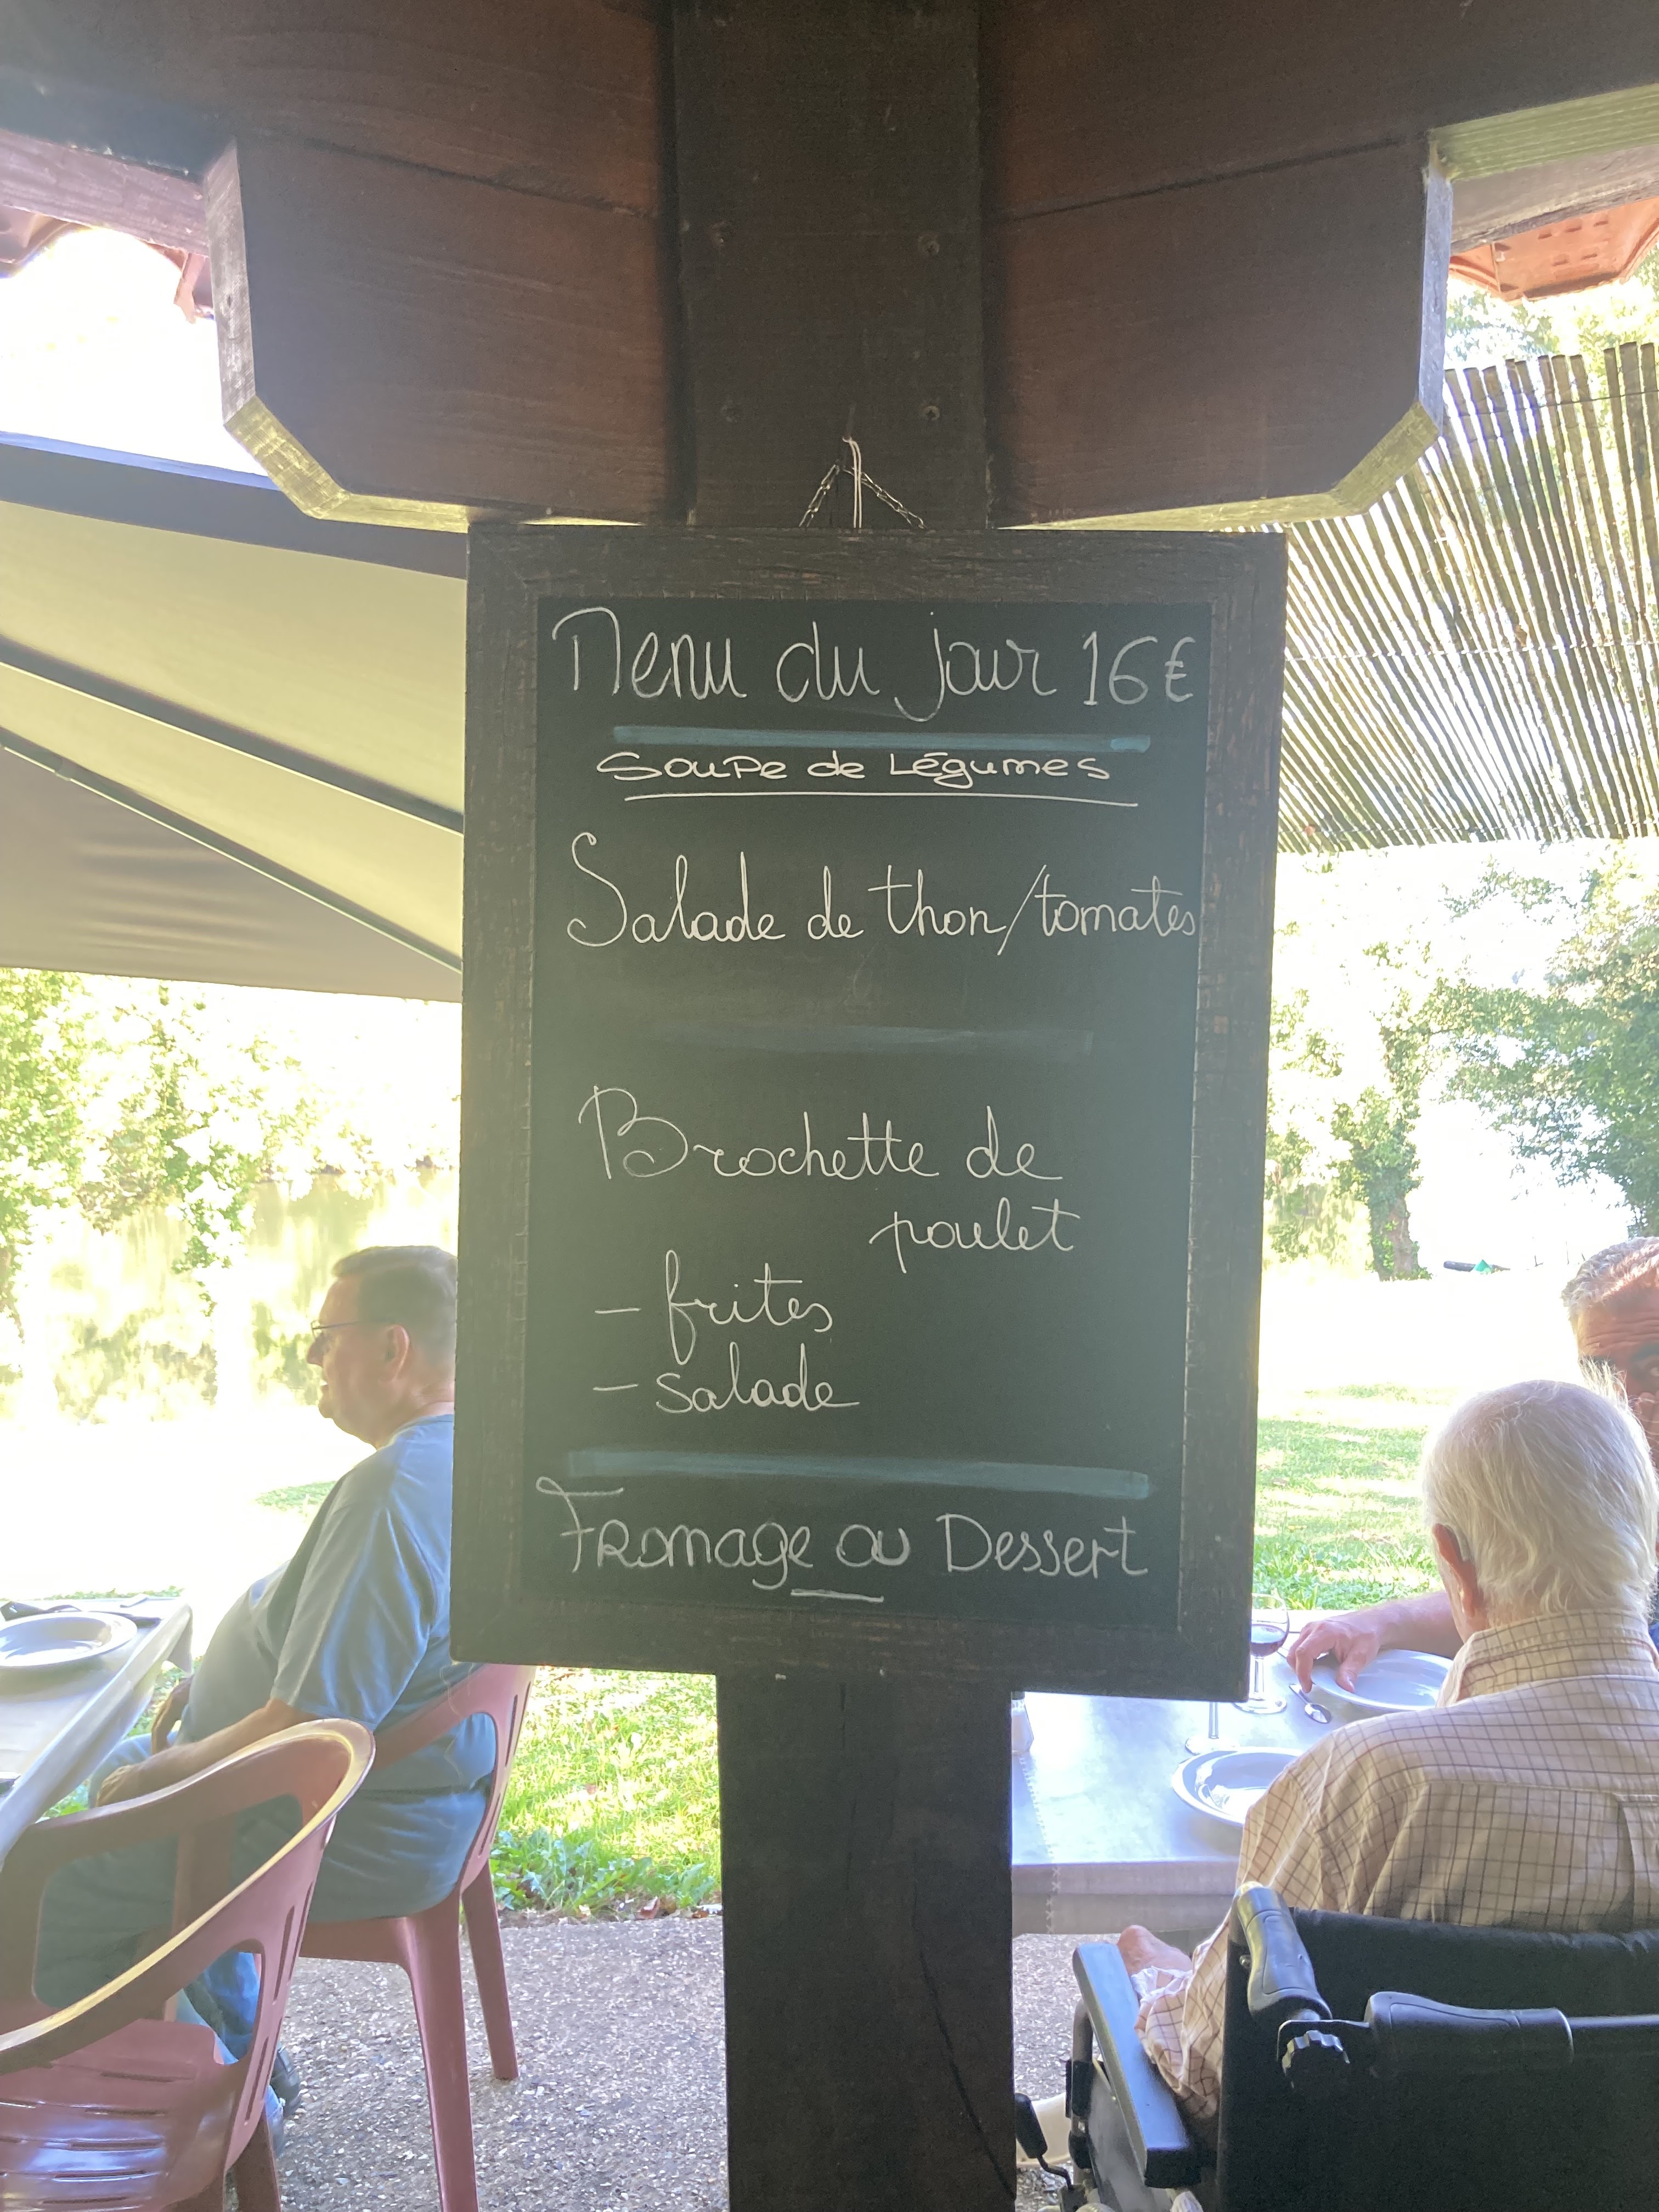 Menu du jour 16€
Soupe de Légumes
Salade de thon/tomates
Brochette de
poulet
- frites
- salade
Fromage ou Dessert